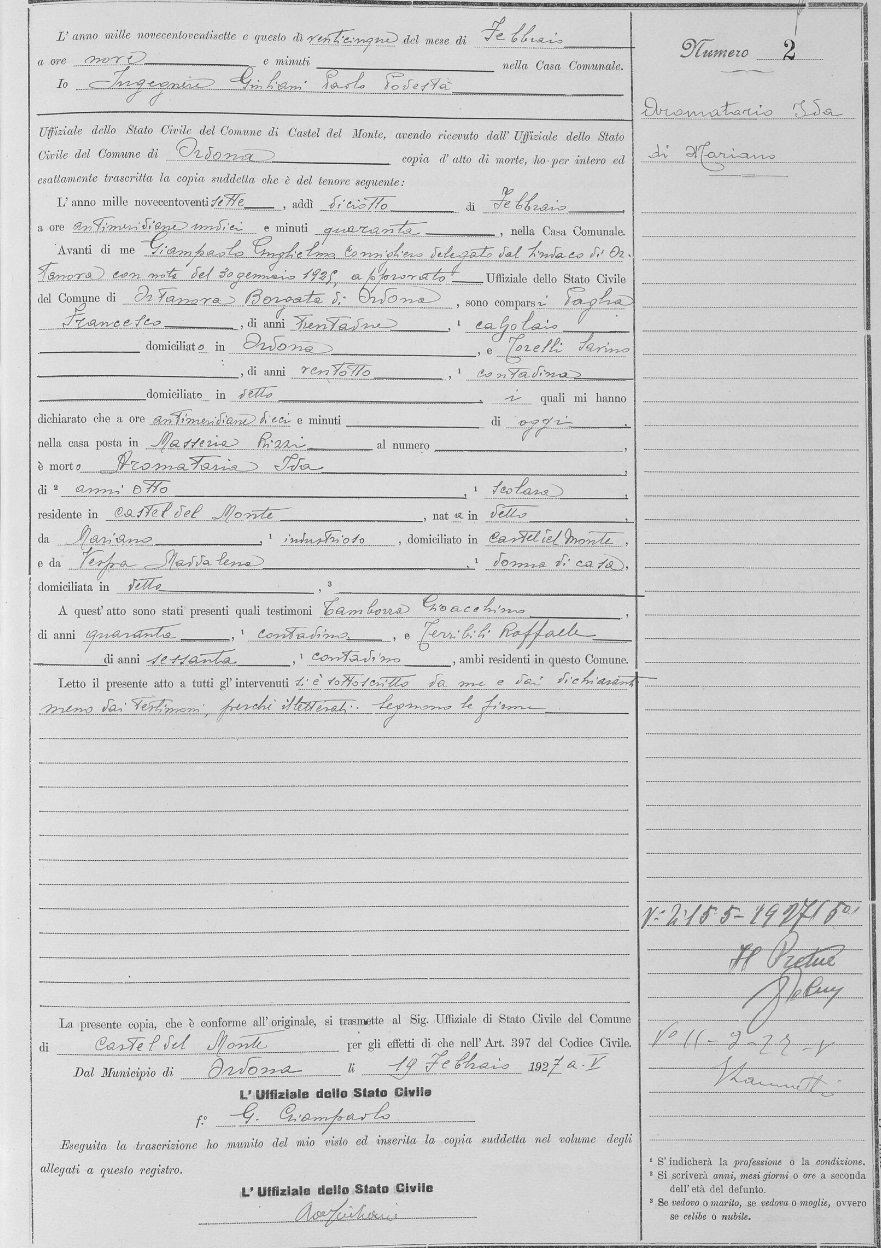 L' anno mille novecentoventisette e questo dì venticinque del mese di Febbraio
a ore nove e minuti nella Casa Comunale.
Io Ingegnere Giuliani Paolo Podestà
Uffiziale dello Stato Civile del Comune di Castel del Monte, avendo ricevuto dall' Uffiziale dello Stato
Civile del Comune di Ordona copia d' atto di morte, ho per intero ed
esattamente trascritta la copia suddetta che è del tenore seguente:
L' anno mille novecentoventi sette, addì diciotto di Febbraio,
a ore antimeridiane undici e minuti quaranta, nella Casa Comunale.
Avanti di me Giampaolo Guglielmo Consigliere delegato dal Sindaco di Or-
tanova con nota del 30 gennaio 192 , approvato Uffiziale dello Stato Civile
del Comune di Ortanova Borgata di Ordona, sono comparsi Paglia
Francesco, di anni trentadue, ¹ calzolaio
domiciliato in Ordona, e Torelli Savino
, di anni ventotto, ¹ contadino
domiciliato in detto, i quali mi hanno
dichiarato che a ore antimeridiane dieci e minuti di oggi,
nella casa posta in Masseria Rizzi al numero ,
è morto Aromatario Ida
di ² anni otto, ¹ scolara
residente in Castel del Monte, nat a in detto,
da Mariano, ¹ industrioso, domiciliato in Castel del Monte,
e da Vespa Maddalena, ¹ donna di casa,
domiciliata in detto, ³
A quest' atto sono stati presenti quali testimoni Tamborra Gioacchino
di anni quaranta, ¹ contadino, e Terribili Raffaele
di anni sessanta, ¹ contadino, ambi residenti in questo Comune.
Letto il presente atto a tutti gl' intervenuti si è sottoscritto da me e dai dichiaranti
meno dai testimoni, perchè illetterati. Seguono le firme
La presente copia, che è conforme all' originale, si trasmette al Sig. Uffiziale di Stato Civile del Comune
di Castel del Monte per gli effetti di che nell' Art. 397 del Codice Civile.
Dal Municipio di Ordona li 19 Febbraio 1927 a. V
L' Uffiziale dello Stato Civile
f.º G. Giampaolo
Eseguita la trascrizione ho munito del mio visto ed inserita la copia suddetta nel volume degli
allegati a questo registro.
L' Uffiziale dello Stato Civile
Numero 2
Aromatario Ida
di Mariano
Il Pretore
¹ S' indicherà la professione o la condizione.
² Si scriverà anni, mesi giorni o ore a seconda
dell' età del defunto.
³ Se vedovo o marito, se vedova o moglie, ovvero
se celibe o nubile.